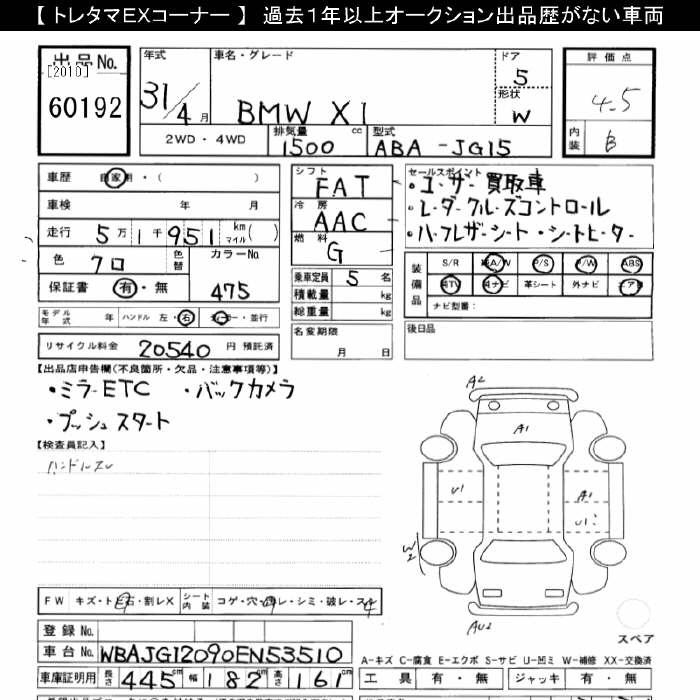 【 トレタマEXコーナー 】 過去1年以上オークション出品歴がない車両
出品No.
[2010]
60192
年式
31/4月
車名・グレード
BMW X1
ドア
5
形状
W
評価点
4.5
内装
B
2WD・4WD
排気量
1500 cc
型式
ABA-JG15
車歴 自家用・( )
車検 年 月
走行 5万1千951 km マイル( )
色 クロ 色替 カラーNo 475
保証書 有・無
モデル年式 年 ハンドル 左・右 ・並行
リサイクル料金 20540 円 預託済
シフト
FAT
冷房
AAC
燃料
G
乗車定員 5 名
積載量 kg
総重量 kg
名変期限
月 日
セールスポイント
・ユーザー買取車
・レーダークルーズコントロール
・ハーフレザーシート・シートヒーター
装備品
S/R A/W P/S P/W ABS
TV ナビ 革シート 外ナビ エアB
ナビ型番：
後日品
【出品店申告欄(不良箇所・欠品・注意事項等)】
・ミラーETC ・バックカメラ
・プッシュスタート
【検査員記入】
ハンドルスレ
A2
A1
U1
A1
U1
W2
AU2
スペア
FW キズ・ヒビ石・割レX シート内装 コゲ・穴・切レ・シミ・破レ・スレ
登録No.
車台No. WBAJG12090EN53510
車庫証明用 長さ 445cm 幅 182cm 高さ 161cm
A-キズ C-腐食 E-エクボ S-サビ U-凹ミ W-補修 XX-交換済
工具 有・無 ジャッキ 有・無